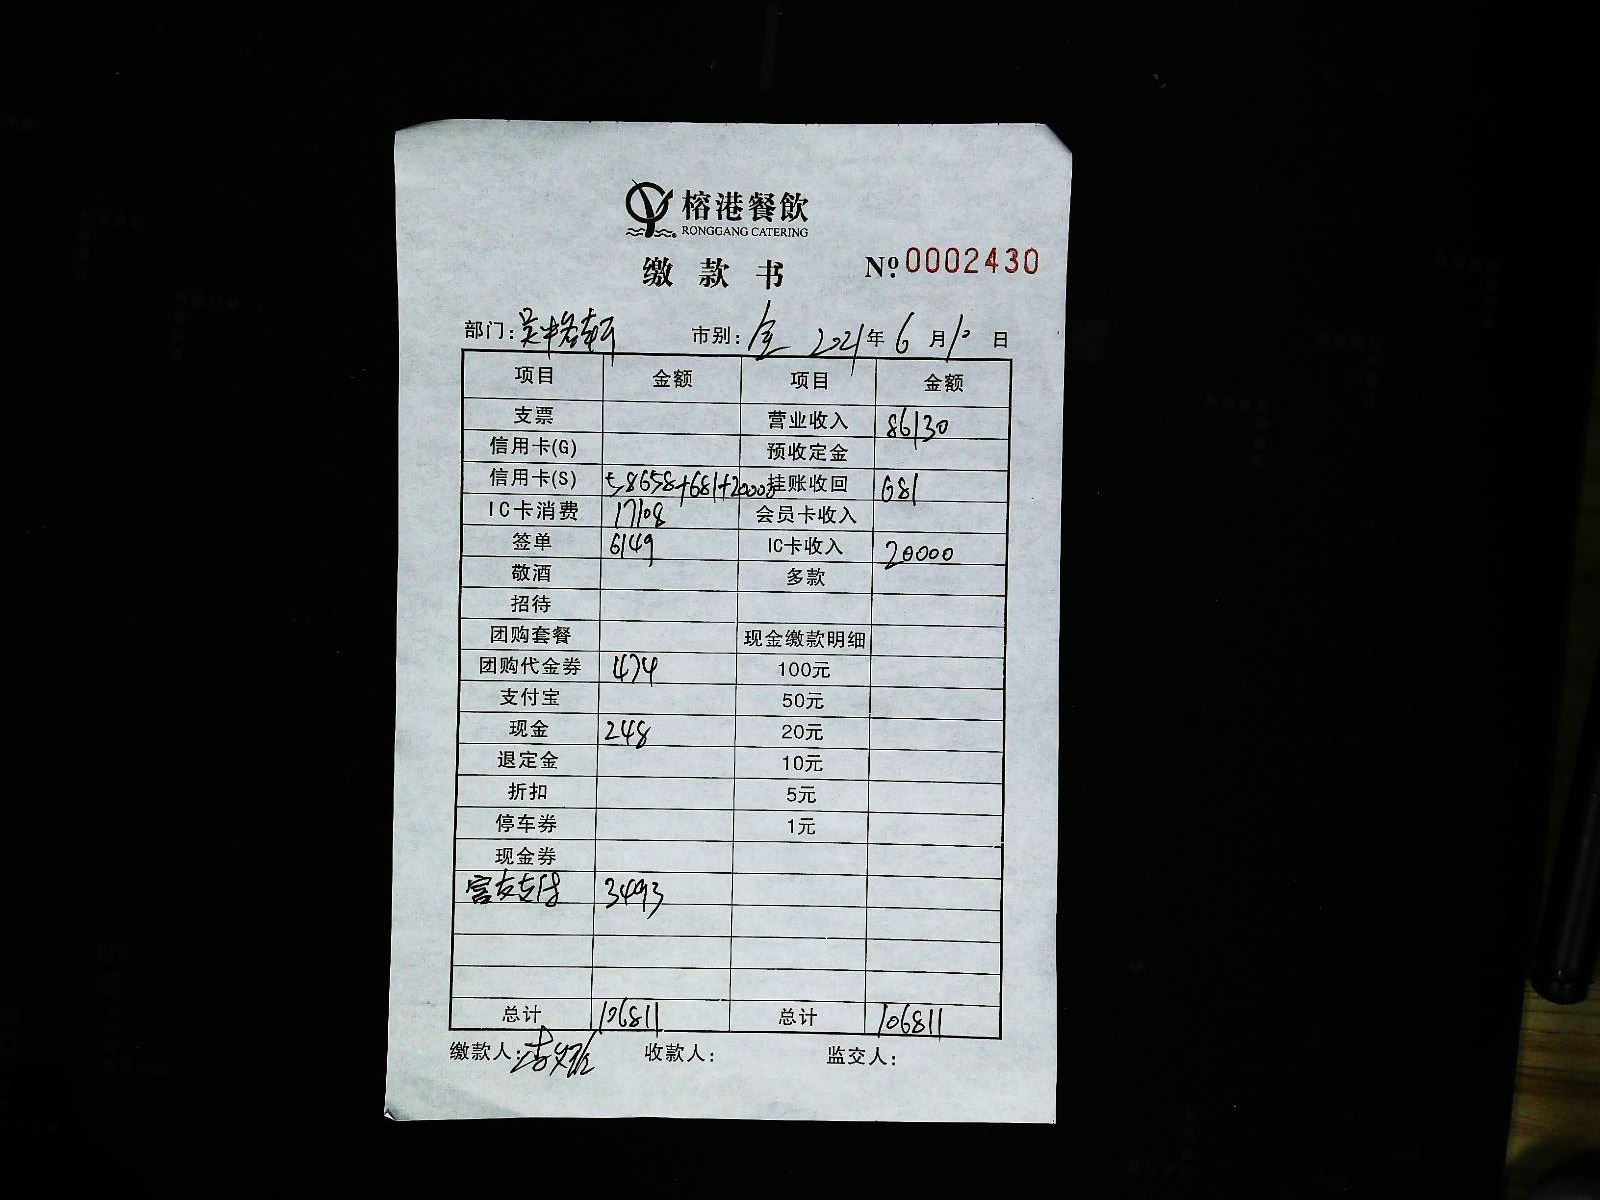 榕港餐飲
RONGGANG CATERING
缴款书 Nº 0002430
部门: 市别:全 2021年6月10日
项目 金额 项目 金额
支票 营业收入 86130
信用卡(G) 预收定金
信用卡(S) 58658+681+20000 挂账收回 681
IC卡消费 17108 会员卡收入
签单 6149 IC卡收入 20000
敬酒 多款
招待
团购套餐 现金缴款明细
团购代金券 474 100元
支付宝 50元
现金 248 20元
退定金 10元
折扣 5元
停车券 1元
现金券
富友支付 3493
总计 106811 总计 106811
缴款人: 收款人: 监交人: